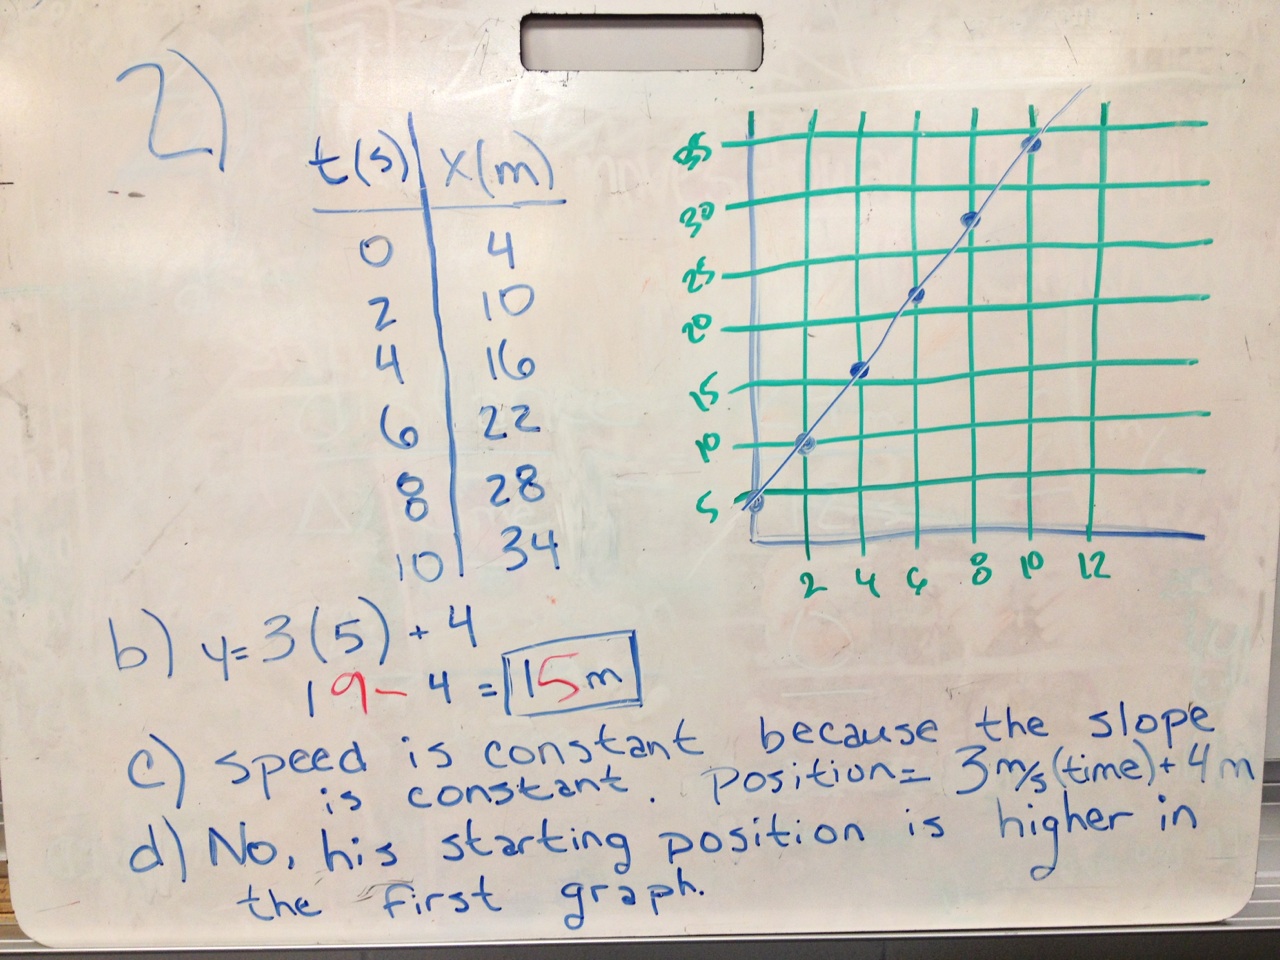 2)
t(s) x(m)
0 4
2 10
4 16
6 22
8 28
10 34
35
30
25
20
15
10
5
2 4 6 8 10 12
b) y=3(5)+4
19-4=15m
c) speed is constant because the slope
is constant. position=3m/s(time)+4m
d) No, his starting position is higher in
the first graph.